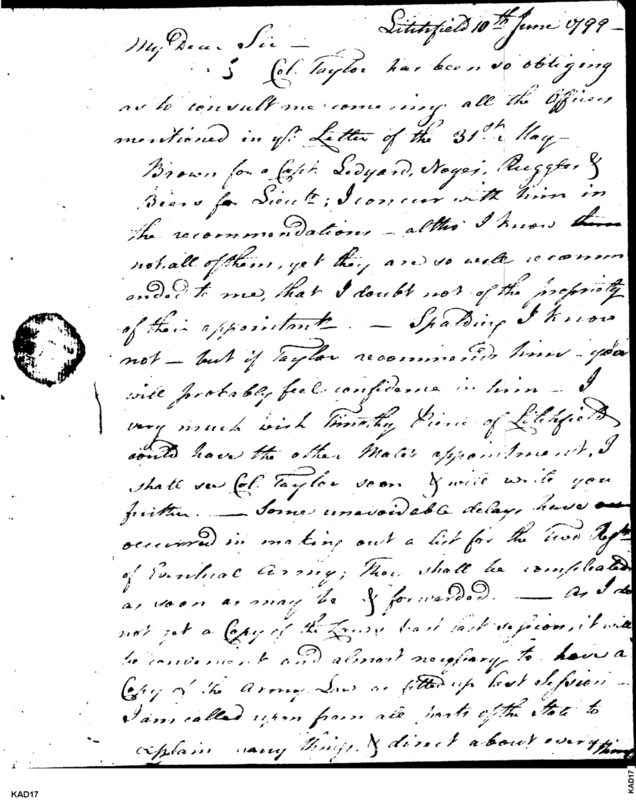 Litchfield 10th June 1799 -
My Dear Sir -
Col. Taylor has been so obliging
as to consult me concerning all the Officers
mentioned in yr. Letter of the 31st May -
Brown for a Capt. Ledyard, Noyes, Ruggles &
Beers for Lieuts; I concur with him in
the recommendations - altho I know them
not all of them, yet they are so well recomm
ended to me, that I doubt not of the propriety
of their appointmts. - Spalding I know
not - but if Taylor recommends him - you
will probably feel confidence in him - I
very much wish Timothy of Litchfield
could have the other appointment, I
shall see Col. Taylor soon & will write you
further. - Some unavoidable delays have
occurred in making out a list for the two Regts
of Eventual Army; They shall be compleated
as soon as may be & forwarded. - As I do
not get a Copy of the Laws last session, it will
be convenient and almost necessary to have a
Copy of the Army Law as fitted up last Session -
I am called upon from all parts of the State to
explain many things, & direct about every thing
KAD17
KAD17